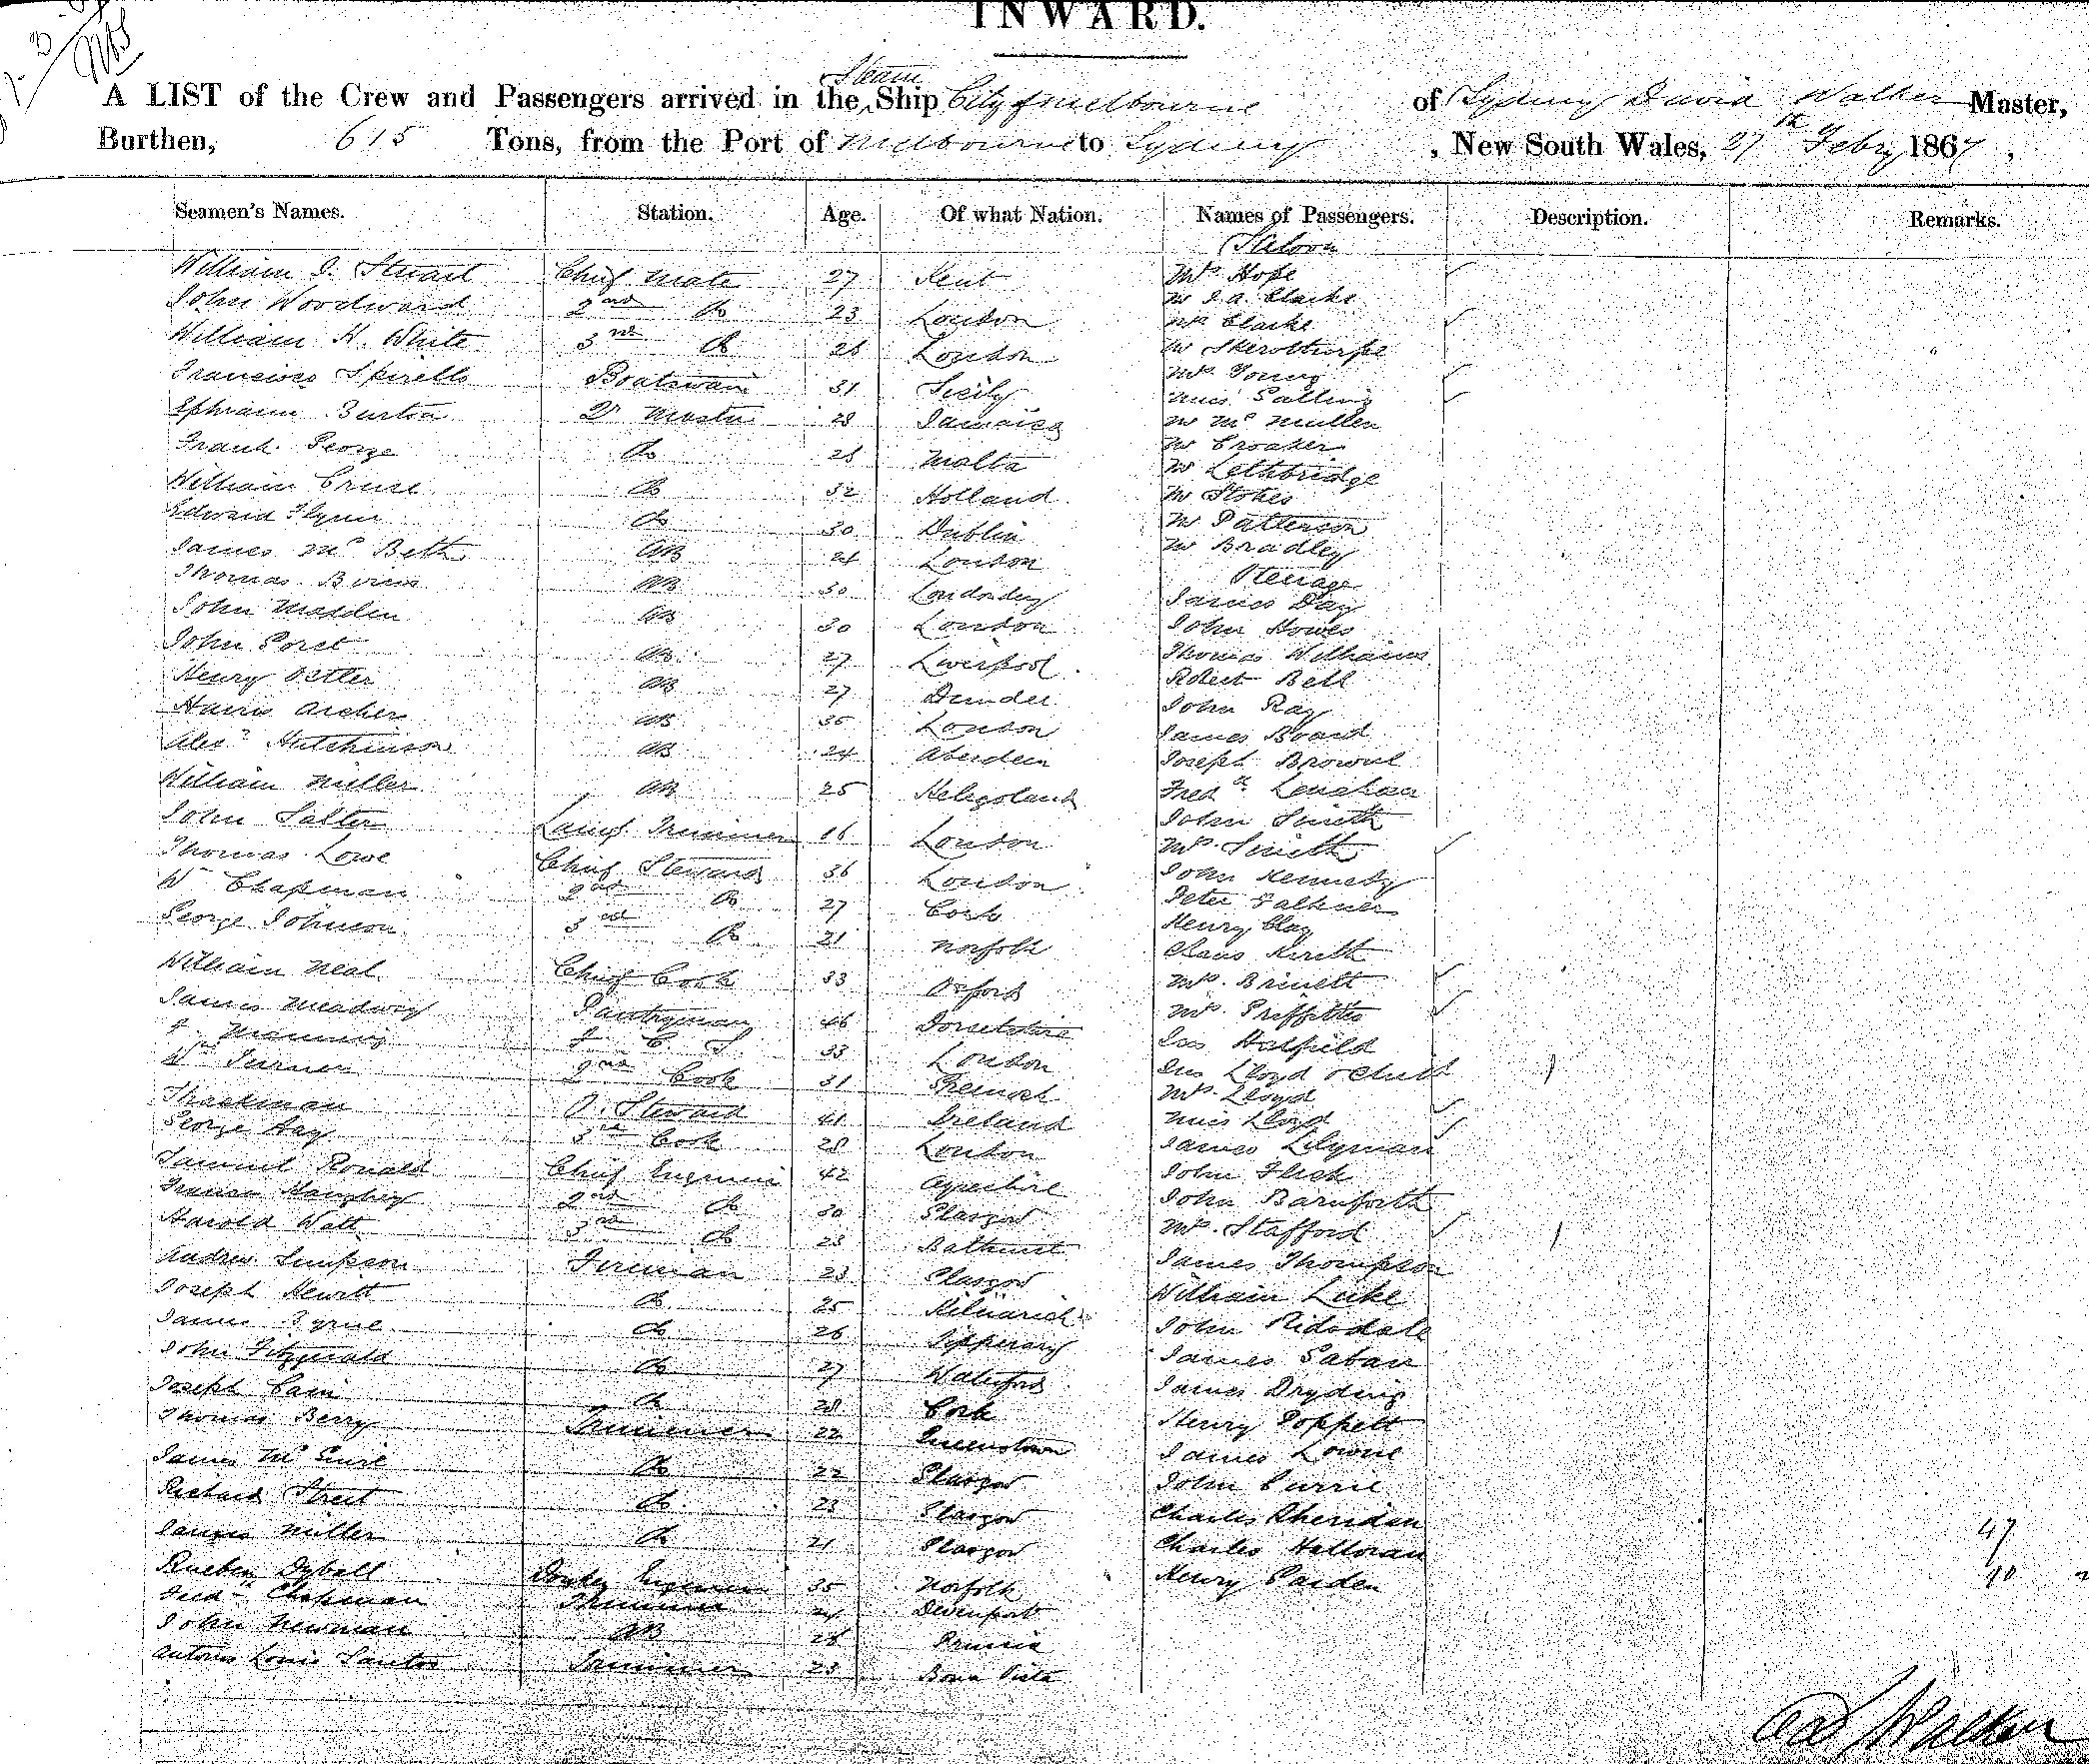 INWARD.
A LIST of the Crew and Passengers arrived in the Steam Ship City of Melbourne of Sydney David Walker Master,
Burthen, 615 Tons, from the Port of Melbourne to Sydney, New South Wales, 27th Febry 1867,
Seamen's Names. Station. Age. Of what Nation. Names of Passengers. Description. Remarks.
Saloon
William J. Stuart Chief Mate 27 Kent Mrs Hope
John Woodward 2nd Do 23 London Mr J. A. Clarke
Mrs Clarke
William H. White 3rd Do 26 London Mr Skirothurpe
Francisco Spirello Boatswain 31 Sicily Mrs Young
Miss Salting
Ephraim Burton Qr Master 28 Jamaica Mr McMullen
Frank George Do 28 Malta Mr Croaker
Mr Lethbridge
William Cruse Do 32 Holland Mr Stokes
Edward Flynn Do 30 Dublin Mr Patterson
James McBeth AB 24 London Mr Bradley
Steerage
Thomas Birns AB 30 Londondery James Day
John Madden AB 30 London John Howes
John Poret AB 27 Liverpool Thomas Williams
Henry AB 27 Dundee Robert Bell
Harris Archer AB London John Ray
James Board
Alexr Hutchinson AB 24 Aberdeen Joseph Browne
William Miller AB 25 Heligoland Fredk Lenehan
John Salter Lamp Trimmer 16 London John Smith
Mrs Smith
Thomas Lowe Chief Steward 36 London John Kennedy
Wm Chapman 2nd Do 27 Cork Peter Falkner
George Johnson 3rd Do 21 Norfolk Henry Clay
Claus
William Neal Chief Cook 33 Oxford Mrs
James Meadway Pantryman 46 Dorsetshire Mrs Griffiths
J. Manning F. C. S 33 London Jas Hatfield
Wm Turner 2nd Cook 31 Lloyd & Child
Mrs Lloyd
Thackman A. Steward 41 Ireland Miss Lloyd
George Hay 3rd Cook 28 London James Lilyman
Samuel Ronald Chief Engineer 42 Ayrshire John Fleck
Francis Haughey 2nd Do 30 Glasgow John Barnforth
Harold Watt 3rd Do 23 Bathurst Mrs Stafford
Andrew Simpson Fireman 23 Glasgow James Thompson
Joseph Hewitt Do 25 William Luke
James Byrne Do 26 Tipperary John Ridsdale
John Fitzgerald Do 27 Waterford James Gaban
Joseph Cain Do 28 Cork James Dryding
Thomas Berry Trimmer 22 Queenstown Henry Poppett
James McGuire Do 22 Glasgow James Lowrie
Richard Street Do 23 Glasgow John Currie
Charles Sheridan
James Miller Do 21 Glasgow Charles Halloran 47
Rueben Dyball Donkey Engineer 35 Norfolk Henry Parden
Fredk Chapman Trimmer 24 Devenport
John Newman AB 26 Prussia
Antonio Louis Santos Trimmer 23 Bona Vista
Walker